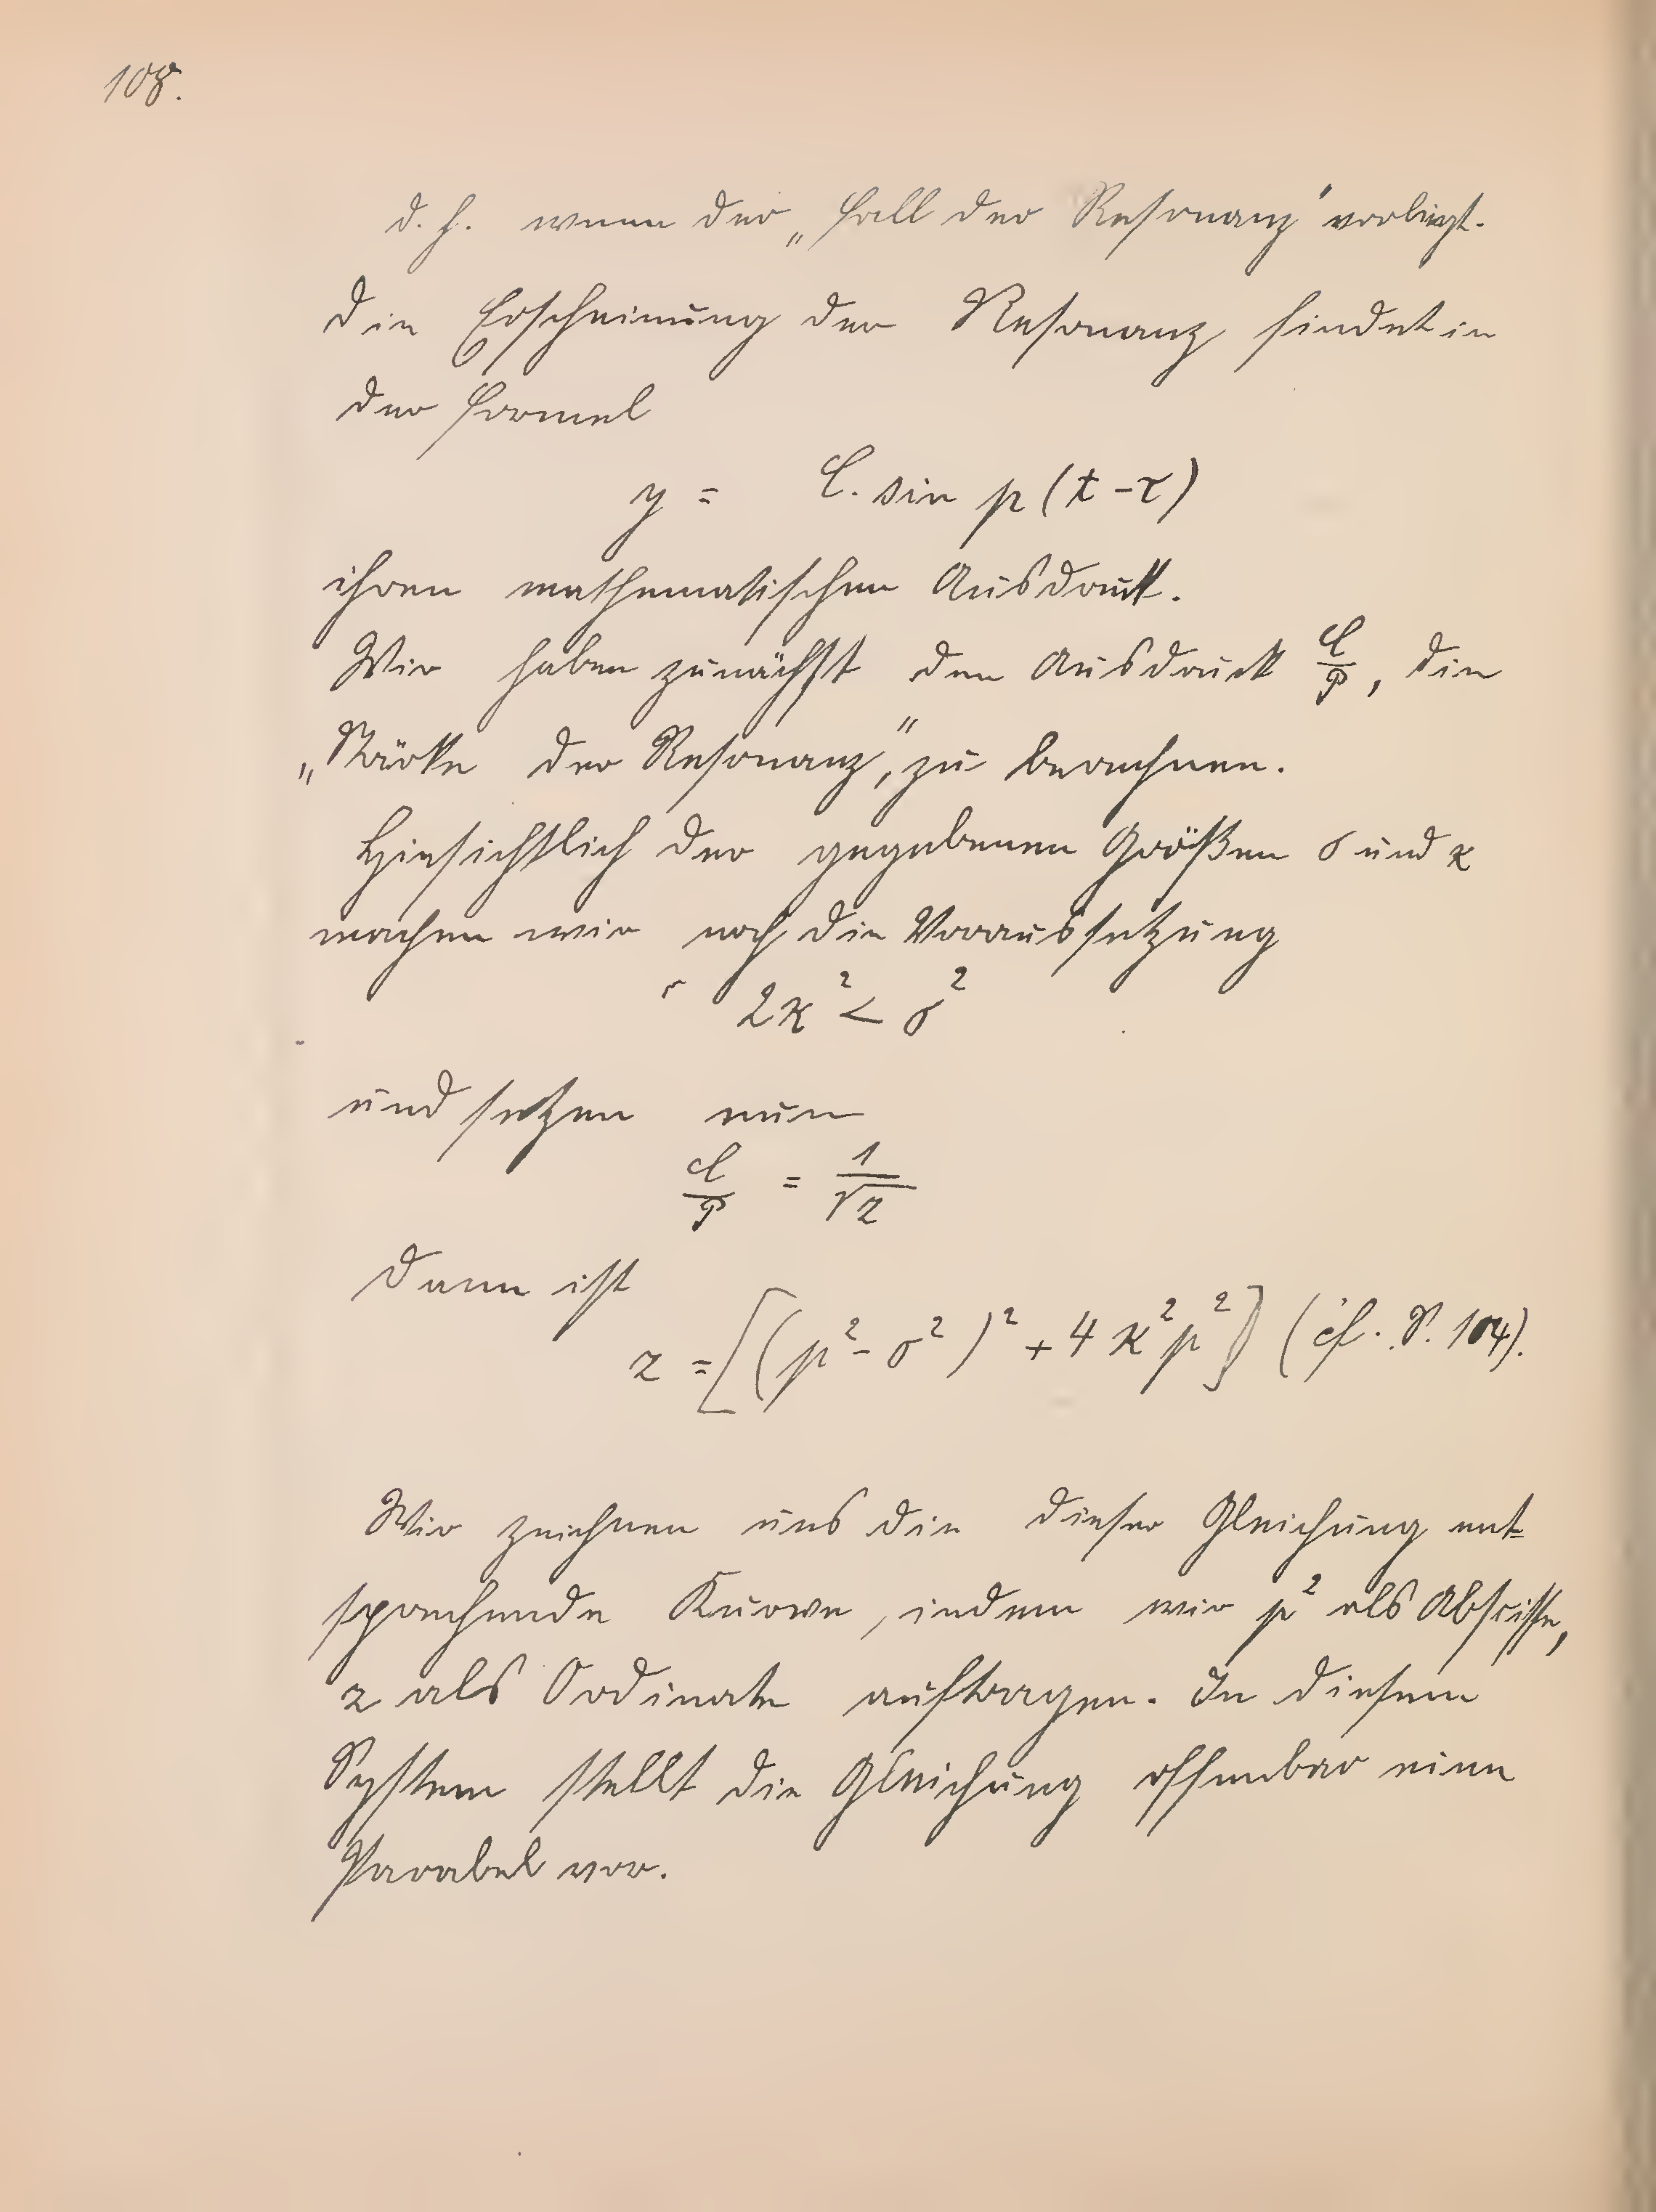 108.
d. h. wenn der „Fall der Resonanz" vorliegt.
Die Erscheinung der Resonanz findet in
der Formel
y = C. sin p (t - τ)
ihren mathematischen Ausdruck.
Wir haben zunächst den Ausdruck C/P, die
„Stärke der Resonanz", zu berechnen.
Hinsichtlich der gegebenen Größen σ und κ
machen wir noch die Voraussetzung
2κ² < σ²
und setzen nun
C/P = 1/√z
Dann ist
z = [(p² - σ²)² + 4κ²p²] (cf. S. 104).
Wir zeichnen uns die dieser Gleichung ent=
sprechende Kurve, indem wir p² als Abscisse,
z als Ordinate auftragen. In diesem
System stellt die Gleichung offenbar eine
Parabel vor.